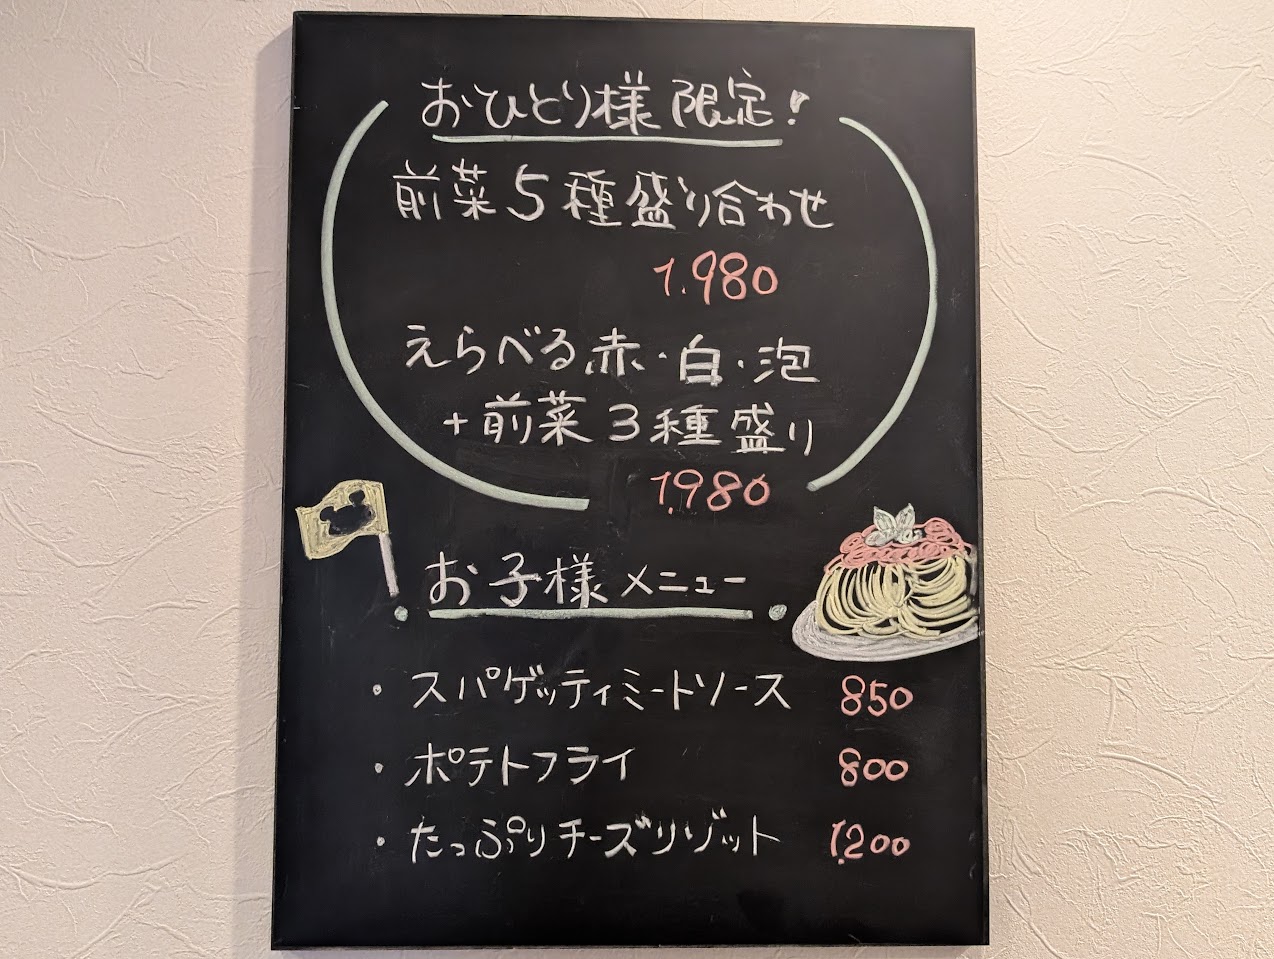 おひとり様 限定!
前菜5種盛り合わせ
1.980
えらべる赤・白・泡
+前菜3種盛り
1.980
お子様メニュー
・スパゲッティミートソース 850
・ポテトフライ 800
・たっぷりチーズリゾット 1.200